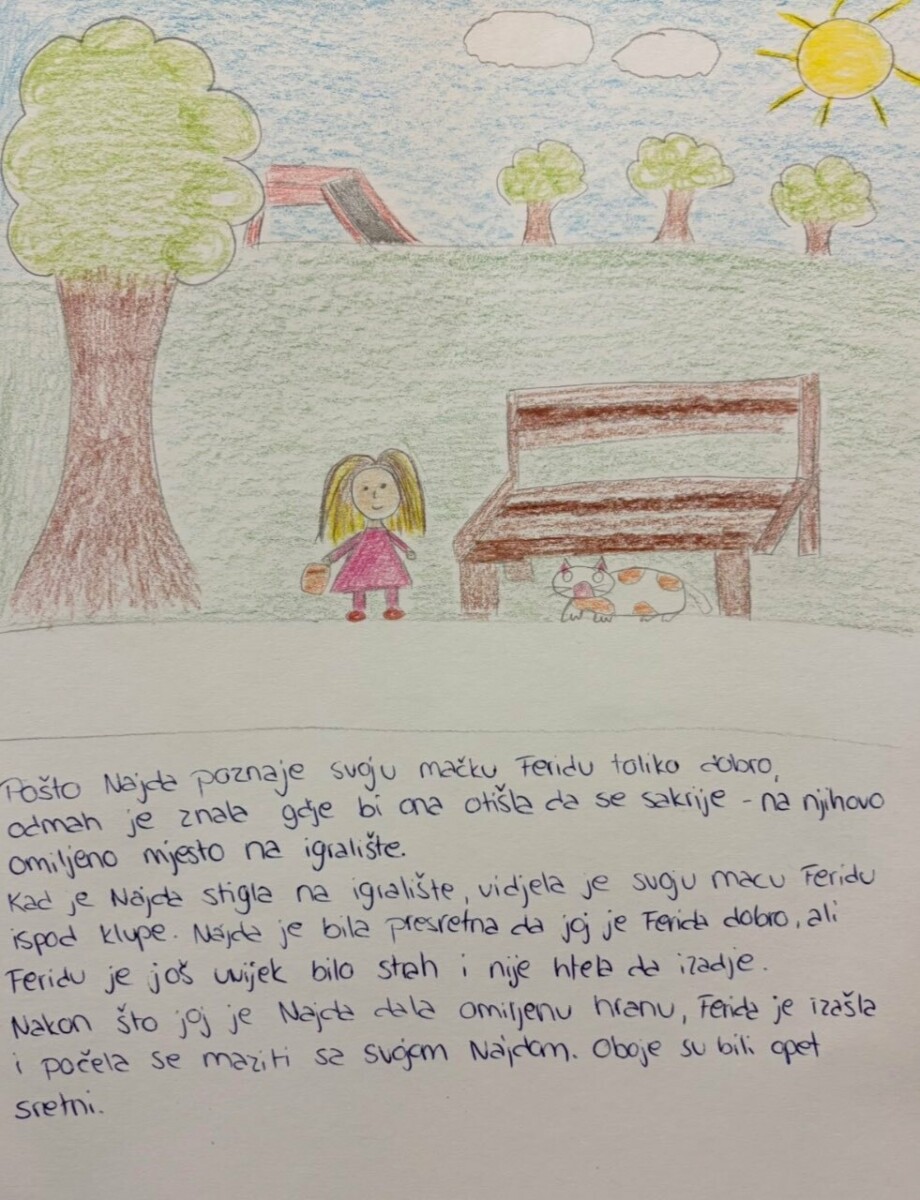 Pošto Najda poznaje svoju mačku Feridu toliko dobro,
odmah je znala gdje bi ona otišla da se sakrije - na njihovo
omiljeno mjesto na igralište.
Kad je Najda stigla na igralište, vidjela je svoju macu Feridu
ispod klupe. Najda je bila presretna da joj je Ferida dobro, ali
Feridu je još uvijek bilo strah i nije htela da izadje.
Nakon što joj je Najda dala omiljenu hranu, Ferida je izašla
i počela se maziti sa svojom Najdom. Oboje su bili opet
sretni.